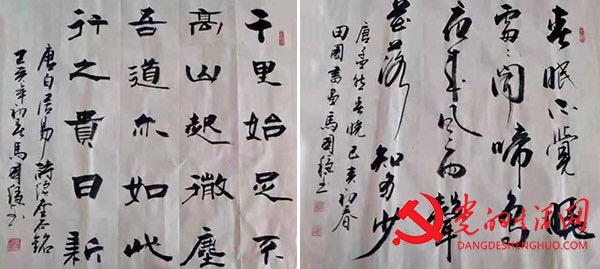 千里始足下
高山起微塵
吾道亦如此
行之貴日新
唐白居易詩續座右銘
己亥年初春馬國书
春眠不覺曉
處々聞啼鳥
夜来风雨聲
花落知多少
唐孟浩然春曉己亥初春
田園書畫馬國书
党的生活网
DANGDESHENGHUO.COM